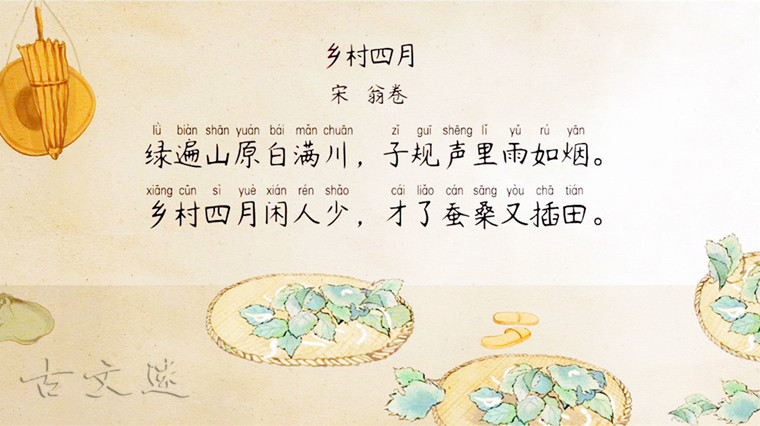 乡村四月
宋 翁卷
lǜ biàn shān yuán bái mǎn chuān zǐ guī shēng lǐ yǔ rú yān
绿遍山原白满川，子规声里雨如烟。
xiāng cūn sì yuè xián rén shǎo cái liǎo cán sāng yòu chā tián
乡村四月闲人少，才了蚕桑又插田。
古文迷